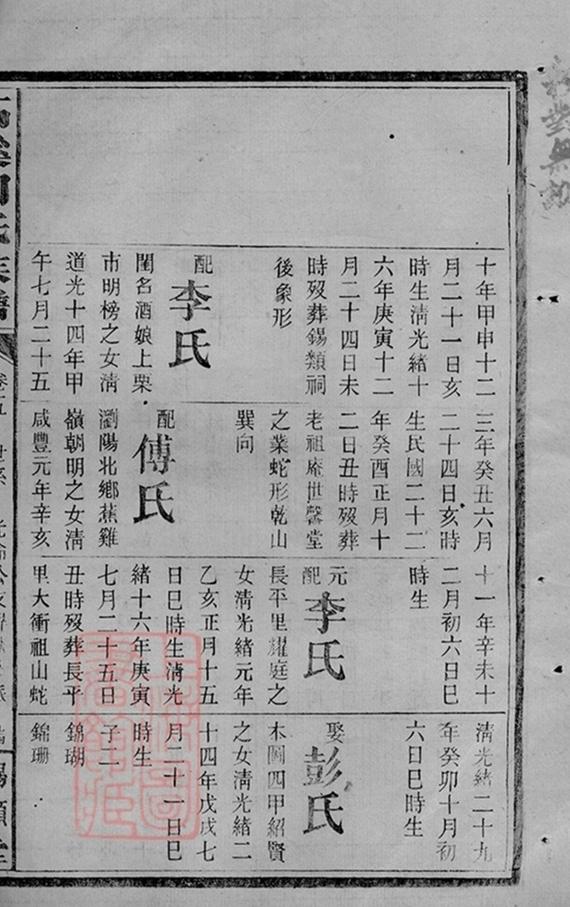 十年甲申十二
月二十一日亥
時生淸光緒十
六年庚寅十二
月二十四日未
時歿葬錫類祠
後象形
配李氏
閨名酒娘上栗
市明榜之女淸
道光十四年甲
午七月二十五
三年癸丑六月
二十四日亥時
生民國二十二
年癸酉正月十
二日丑時歿葬
老祖庵世馨堂
之業蛇形乾山
巽向
配傅氏
瀏陽北鄉蕉雞
嶺朝明之女淸
咸豐元年辛亥
十一年辛未十
二月初六日巳
時生
元配李氏
長平里耀庭之
女淸光緒元年
乙亥正月十五
日巳時生淸光
緒十六年庚寅
七月二十五日
丑時歿葬長平
里大衝祖山蛇
淸光緒二十九
年癸卯十月初
六日巳時生
娶彭氏
木圓四甲紹賢
之女淸光緒二
十四年戊戌七
月二十一日巳
時生
子二
錦瑚
錦珊